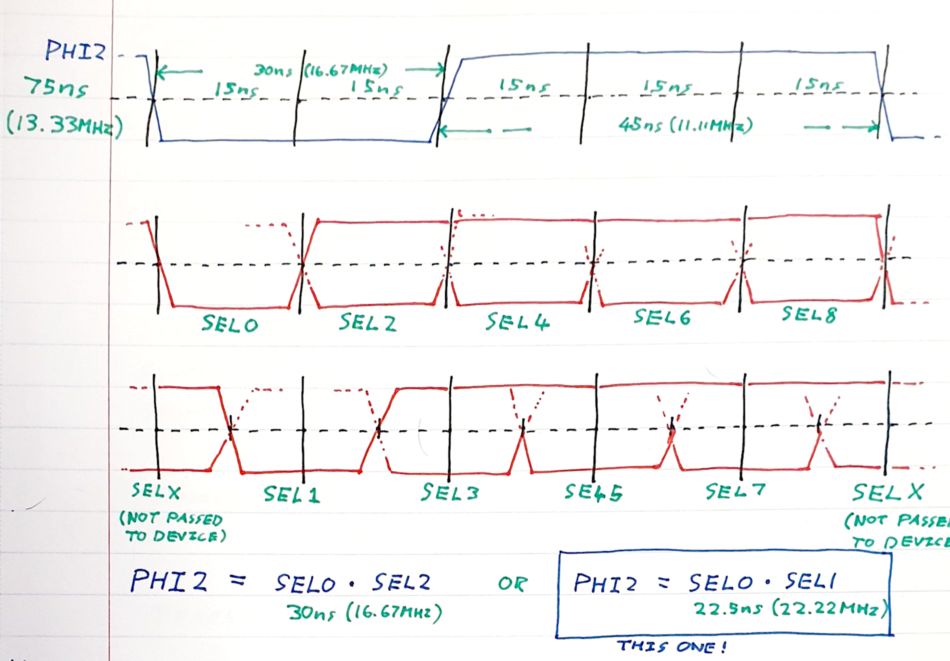 PHI2
30ns (16.67MHz)
75ns
15ns 15ns 15ns 15ns 15ns
(13.33MHz)
45ns (11.11MHz)
SEL0 SEL2 SEL4 SEL6 SEL8
SELX SEL1 SEL3 SE45 SEL7 SELX
(NOT PASSED
TO DEVICE)
(NOT PASSE
TO DEVICE
PHI2 = SEL0 · SEL2 OR PHI2 = SEL0 · SEL1
30ns (16.67MHz) 22.5ns (22.22MHz)
THIS ONE!